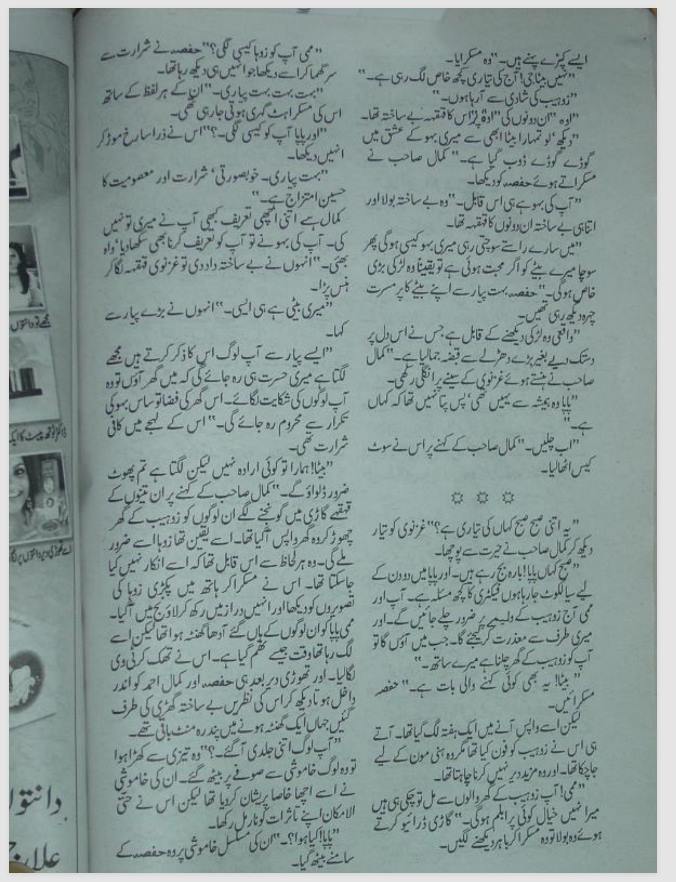 ایسے کپڑے پہنے ہیں۔" وہ مسکرایا۔
"نہیں بیٹا جی! آج کی تیاری کچھ خاص لگ رہی ہے۔"
"زوہیب کی شادی سے آرہا ہوں۔"
"اوہ" ان دونوں کی "اوہ" پر اس کا قہقہہ بے ساختہ تھا۔
"دیکھ لو تمہارا بیٹا ابھی سے میری بہو کے عشق میں
گوڈے گوڈے ڈوب گیا ہے۔" کمال صاحب نے
مسکراتے ہوئے حفصہ کو دیکھا۔
"آپ کی بہو ہے ہی اس قابل۔" وہ بے ساختہ بولا اور
اتنا ہی بے ساختہ ان دونوں کا قہقہہ تھا۔
"میں سارے راستے سوچتی رہی میری بہو کیسی ہوگی پھر
سوچا میرے بیٹے کو اگر محبت ہوئی ہے تو یقیناً وہ لڑکی بڑی
خاص ہوگی۔" حفصہ بہت پیار سے اپنے بیٹے کا پر مسرت
چہرہ دیکھ رہی تھیں۔
"واقعی وہ لڑکی دیکھنے کے قابل ہے جس نے اس دل پر
دستک دیے بغیر بڑے دھڑلے سے قبضہ جمالیا ہے۔" کمال
صاحب نے ہنستے ہوئے غزنوی کے سینے پر انگلی رکھی۔
"پاپا وہ ہمیشہ سے یہیں تھی، بس پتا نہیں تھا کہ کہاں
ہے۔"
"اب چلیں۔" کمال صاحب کے کہنے پر اس نے سوٹ
کیس اٹھالیا۔
"یہ اتنی صبح صبح کہاں کی تیاری ہے؟" غزنوی کو تیار
دیکھ کر کمال صاحب نے حیرت سے پوچھا۔
"صبح کہاں پاپا! بارہ بج رہے ہیں۔ اور پاپا میں دو دن کے
لیے سیالکوٹ جارہا ہوں فیکٹری کا کچھ مسئلہ ہے۔ آپ اور
ممی آج زوہیب کے ولیمے پر ضرور چلے جائیں گے۔ اور
میری طرف سے معذرت کرلیجئے گا۔ جب میں آؤں گا تو
آپ کو زوہیب کے گھر چلنا ہے میرے ساتھ۔"
"بیٹا! یہ بھی کوئی کہنے والی بات ہے۔" حفصہ
مسکرائیں۔
لیکن اسے واپس آنے میں ایک ہفتہ لگ گیا تھا۔ آتے
ہی اس نے زوہیب کو فون کیا تھا مگر وہ ہنی مون کے لیے
جاچکا تھا۔ اور وہ مزید دیر نہیں کرنا چاہتا تھا۔
"ممی! آپ زوہیب کے گھر والوں سے مل تو چکی ہیں
میرا نہیں خیال کوئی پرابلم ہوگی۔" گاڑی ڈرائیو کرتے
ہوئے وہ بولا تو وہ مسکرا کر باہر دیکھنے لگیں۔
"ممی آپ کو زوہا کیسی لگی؟" حفصہ نے شرارت سے
سر گھما کر اسے دیکھا جو انہیں ہی دیکھ رہا تھا۔
"بہت بہت بہت پیاری۔" ان کے ہر لفظ کے ساتھ
اس کی مسکراہٹ گہری ہوتی جارہی تھی۔
"اور پاپا آپ کو کیسی لگی۔؟" اس نے ذرا سا رخ موڑ کر
انہیں دیکھا۔
"بہت پیاری۔ خوبصورتی، شرارت اور معصومیت کا
حسین امتزاج ہے۔"
کمال ہے اتنی اچھی تعریف کبھی آپ نے میری تو نہیں
کی۔ آپ کی بہو نے تو آپ کو تعریف کرنا بھی سکھادیا، واہ
بھئی۔" انہوں نے بے ساختہ داد دی تو غزنوی قہقہہ لگا کر
ہنس پڑا۔
"میری بیٹی ہے ہی ایسی۔" انہوں نے بڑے پیار سے
کہا۔
"ایسے پیار سے آپ لوگ اس کا ذکر کرتے ہیں مجھے
لگتا ہے میری حسرت ہی رہ جائے گی کہ میں گھر آؤں تو وہ
آپ لوگوں کی شکایت لگائے۔ اس گھر کی فضا تو ساس بہو کی
تکرار سے محروم رہ جائے گی۔" اس کے لہجے میں کافی
شرارت تھی۔
"بیٹا! ہمارا تو کوئی ارادہ نہیں لیکن لگتا ہے تم پھوٹ
ضرور ڈلواؤ گے۔" کمال صاحب کے کہنے پر ان تینوں کے
قہقہے گاڑی میں گونجنے لگے ان لوگوں کو زوہیب کے گھر
چھوڑ کر وہ گھر واپس آگیا تھا۔ اسے یقین تھا زوہا اسے ضرور
ملے گی۔ وہ ہر لحاظ سے اس قابل تھا کہ اسے انکار نہیں کیا
جاسکتا تھا۔ اس نے مسکرا کر ہاتھ میں پکڑی زوہا کی
تصویروں کو دیکھا اور انہیں دراز میں رکھ کر لاؤنج میں آگیا۔
ممی پاپا کو ان لوگوں کے ہاں گئے آدھا گھنٹہ ہوا تھا لیکن اسے
لگ رہا تھا وقت جیسے تھم گیا ہے۔ اس نے تھک کر ٹی وی
لگالیا۔ اور تھوڑی دیر بعد ہی حفصہ اور کمال احمد کو اندر
داخل ہوتا دیکھ کر اس کی نظریں بے ساختہ گھڑی کی طرف
گئیں جہاں ایک گھنٹہ ہونے میں پندرہ منٹ باقی تھے۔
"آپ لوگ اتنی جلدی آگئے۔؟" وہ تیزی سے کھڑا ہوا
تو وہ لوگ خاموشی سے صوفے پر بیٹھ گئے۔ ان کی خاموشی
نے اسے اچھا خاصا پریشان کردیا تھا لیکن اس نے حتی
الامکان اپنے تاثرات کو نارمل رکھا۔
"پاپا! کیا ہوا؟۔" ان کی مسلسل خاموشی پر وہ حفصہ کے
سامنے بیٹھ گیا۔
دانتو
علاج